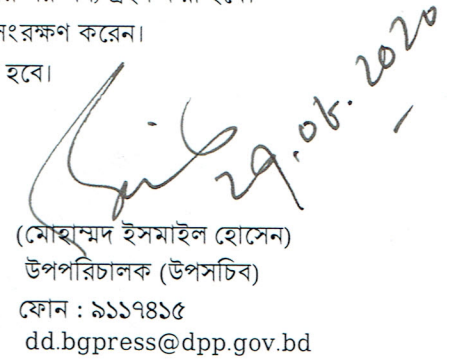 সংরক্ষণ করেন।
হবে।
২৭.০৮.২০২০
(মোহাম্মদ ইসমাইল হোসেন)
উপপরিচালক (উপসচিব)
ফোন : ৯১১৭৪১৫
dd.bgpress@dpp.gov.bd